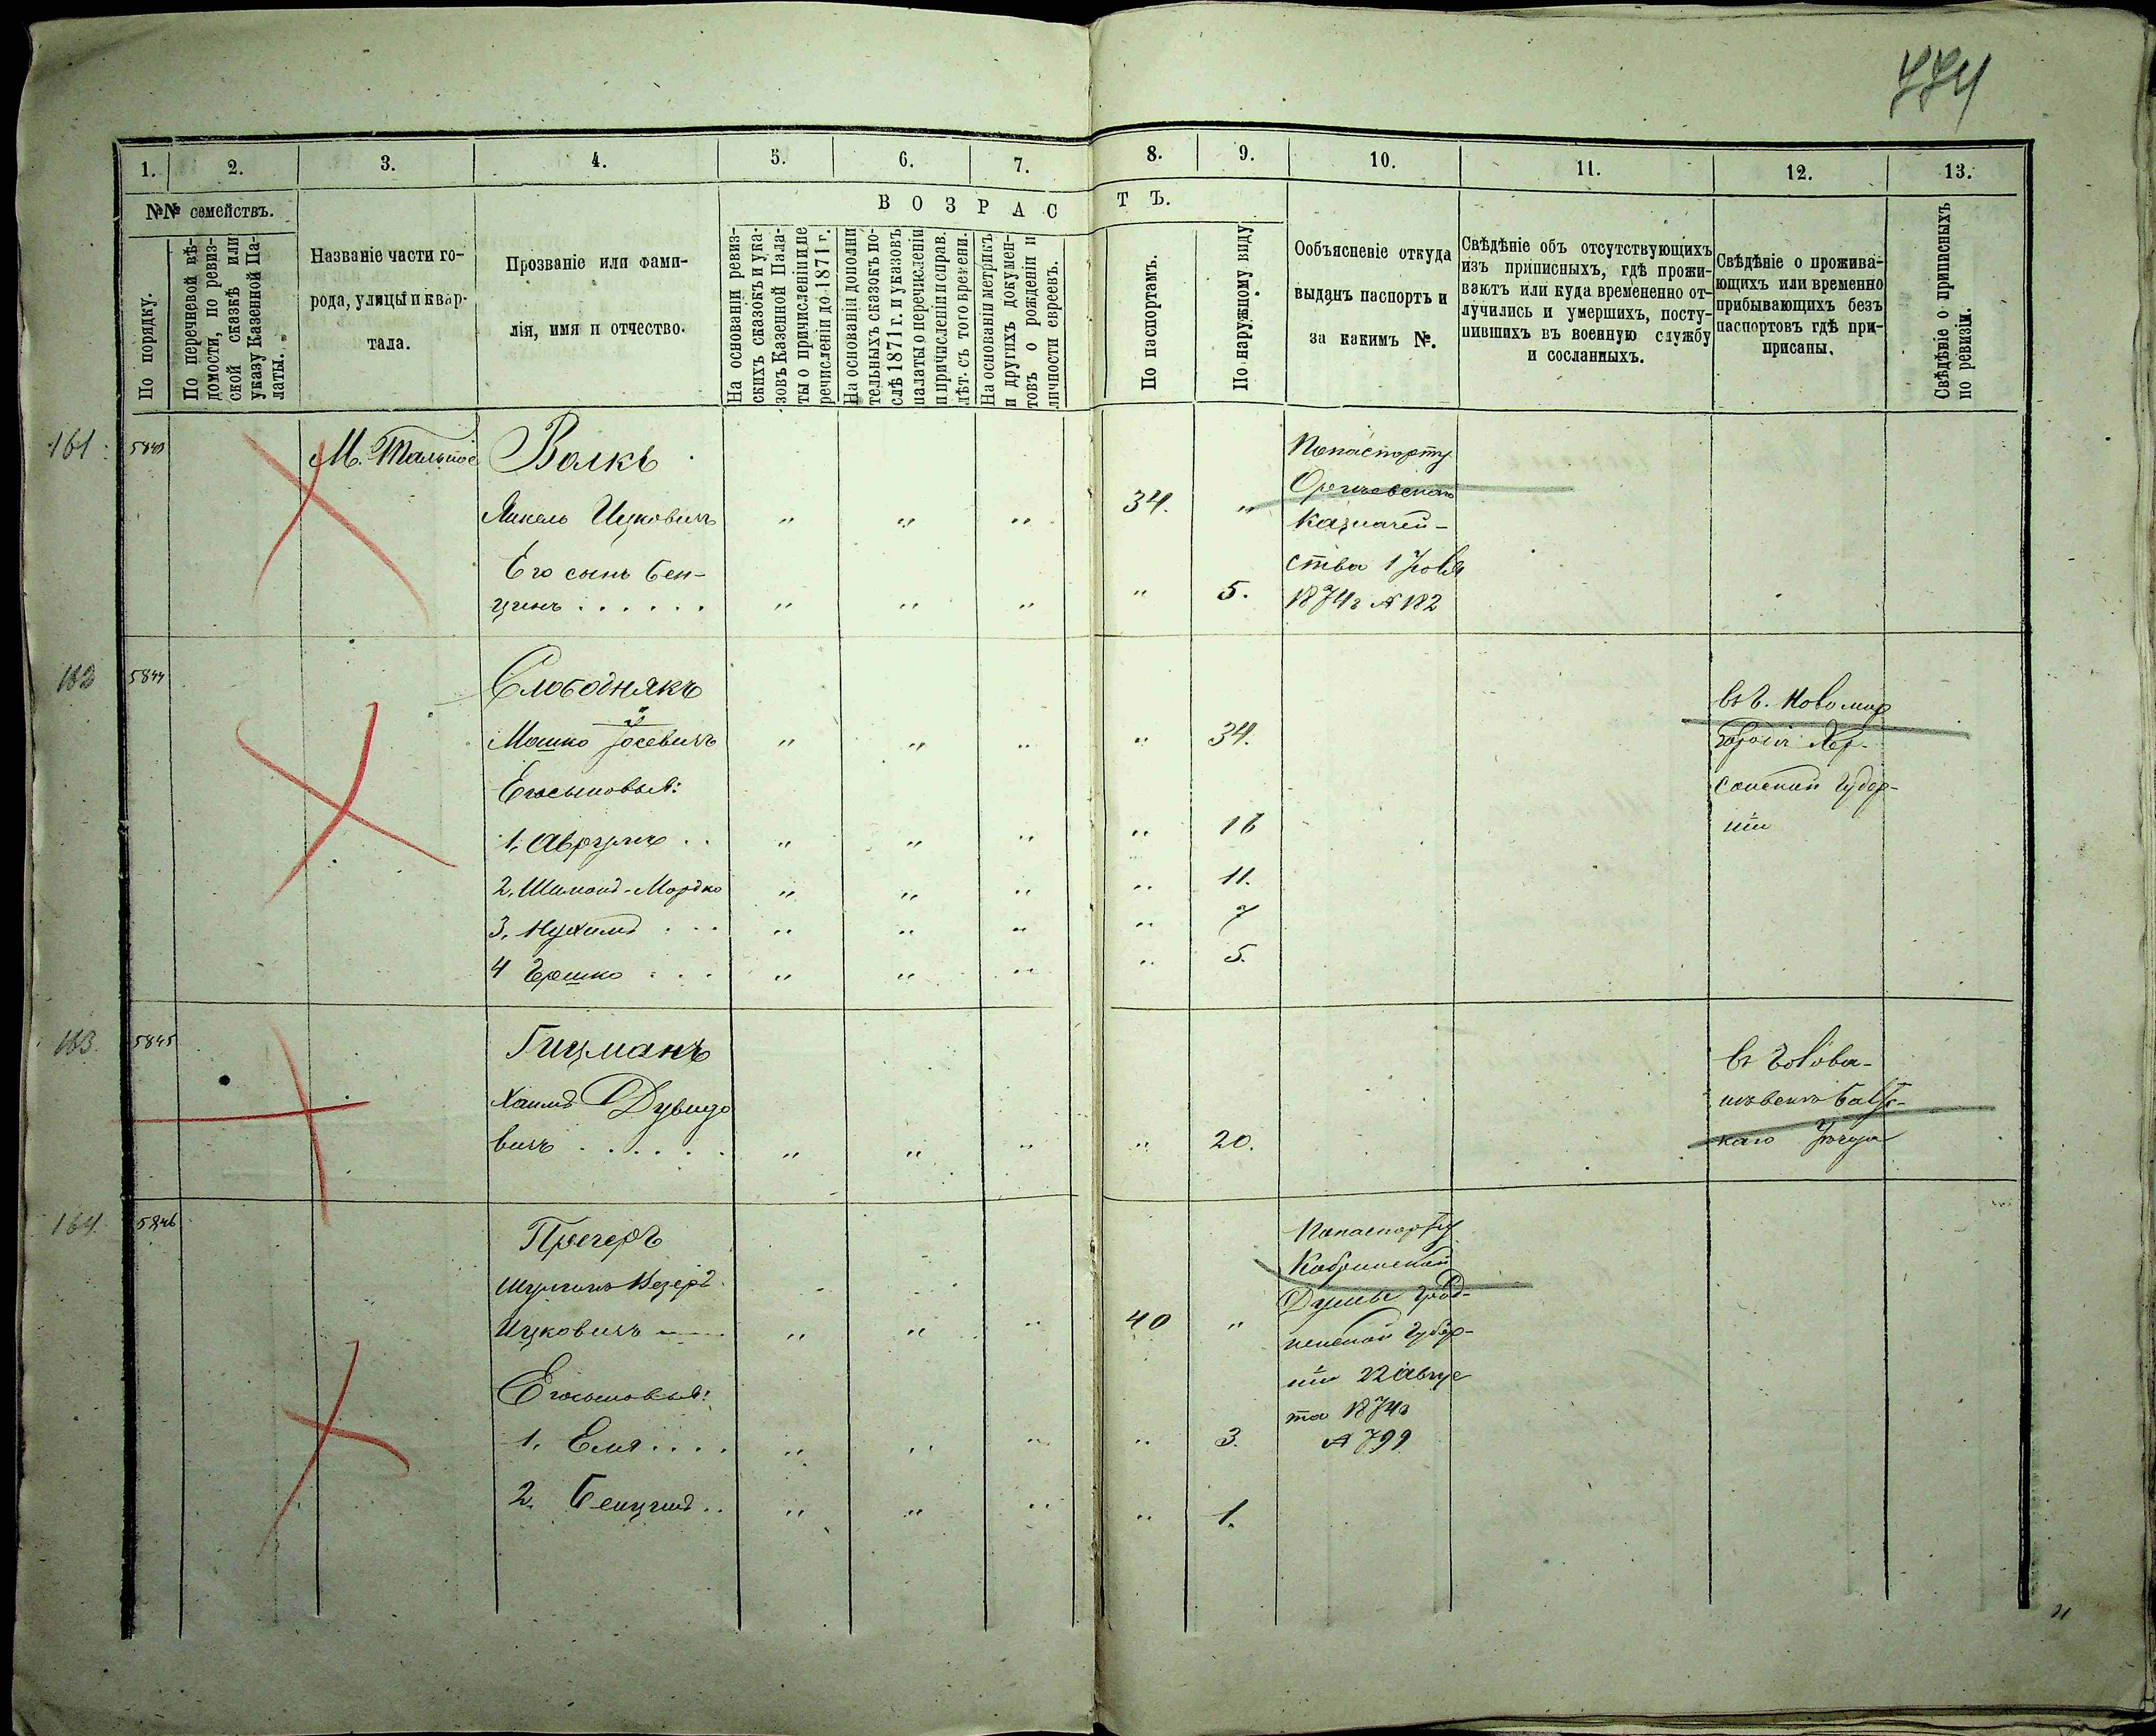 774
1. 2. 3. 4. 5. 6. 7. 8. 9. 10. 11. 12. 13.
№№ семействъ.
В О З Р А С Т Ъ.
По порядку.
По перечневой вѣ-
домости, по ревиз-
ской сказкѣ или
указу Казенной Па-
латы.
Названіе части го-
рода, улицы и квар-
тала.
Прозваніе или фами-
лія, имя и отчество.
На основаніи ревиз-
скихъ сказокъ и ука-
зовъ Казенной Пала-
ты о причисленіи и пе
речисленіи до 1871 г.
На основаніи дополни
тельныхъ сказокъ по-
слѣ 1871 г. и указовъ
палаты о перечисленіи
и причисленіи и справ.
лѣт. съ того времени.
На основаніи метрикъ
и другихъ докумен-
товъ о рожденіи и
личности евреевъ.
По паспортамъ.
По наружному виду
Ообъясненіе откуда
выданъ паспортъ и
за какимъ №.
Свѣдѣніе объ отсутствующихъ
изъ приписныхъ, гдѣ прожи-
ваютъ или куда временено от-
лучились и умершихъ, посту-
пившихъ въ военную службу
и сосланныхъ.
Свѣдѣніе о прожива-
ющихъ или временно
прибывающихъ безъ
паспортовъ гдѣ при-
присаны.
Свѣдѣніе о приписныхъ
по ревизіи.
161 5843 М. Тальное Волкъ
Янкель Ицковичъ " " " 34. "
Его сынъ Бен-
ціонъ . . . . . . " " " " 5.
Попаспорту
казначей-
ства 1
1874г № 182
162 5844 Слободнякъ
Мошко Іосевичъ " " " " 34.
Егосыновья:
1, Аврумъ . . " " " " 16
2, Шимонъ-Мордко " " " " 11.
3, Нухимъ . . . " " " " 7
4 Гершко . . . " " " " 5.
въ г. Новомир
городѣ Хер-
сонской Губер-
ніи
163. 5845 Гицманъ
Хаимъ Дувидо
вичъ . . . . . . " " " " 20.
въ Голова-
нѣвскѣ Балт-
каго Уѣзда
164. 5846
Ицковичъ " " " 40 "
Егосыновья:
1. Еля . . . . " " " " 3.
2. Бенционъ . . " " " " 1.
Попаспорту
Кобринской
Думы Грод-
ненской Губер-
ніи 22 Авгус
та 1874г
№ 799